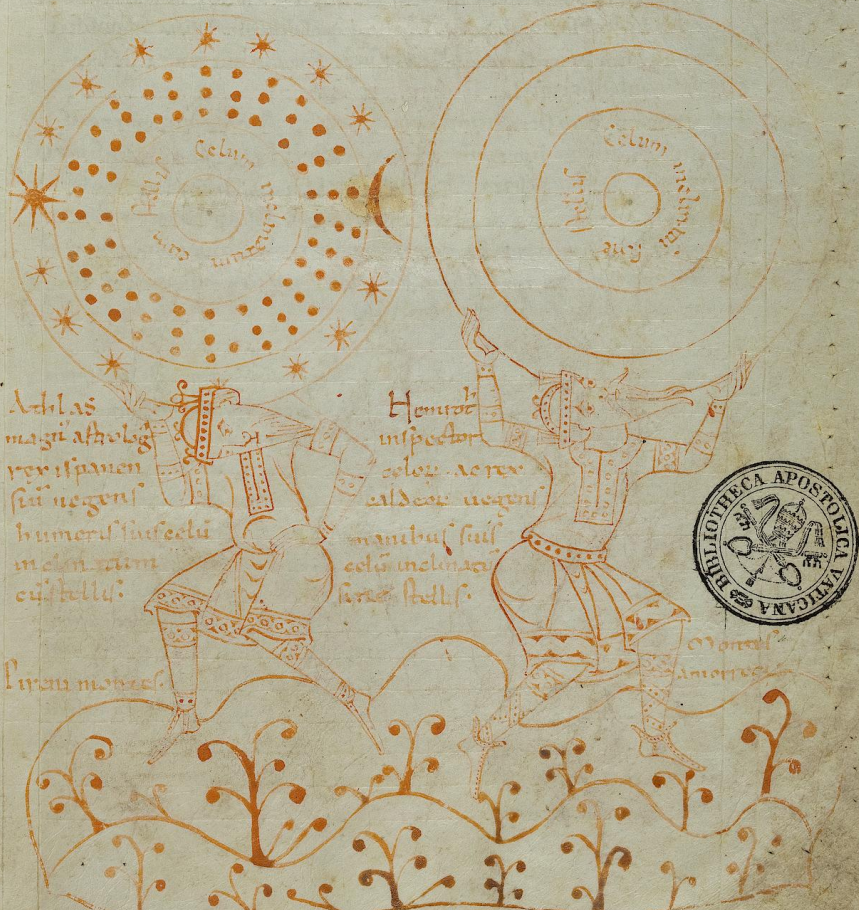 Celum
inclinatum
cum
stellis
Celum inclinatũ
sine
stellas
Athlas
magũ astrolog̃
rex ispanen
siũ uegens
humeris suis celũ
inclinatum
cũ stellis.
inspector
celor̃ ac rex
caldeor̃ uegens
manibus suis
celũ
sine stellis.
Pirenei montes.
Montes
BIBLIOTHECA APOSTOLICA VATICANA